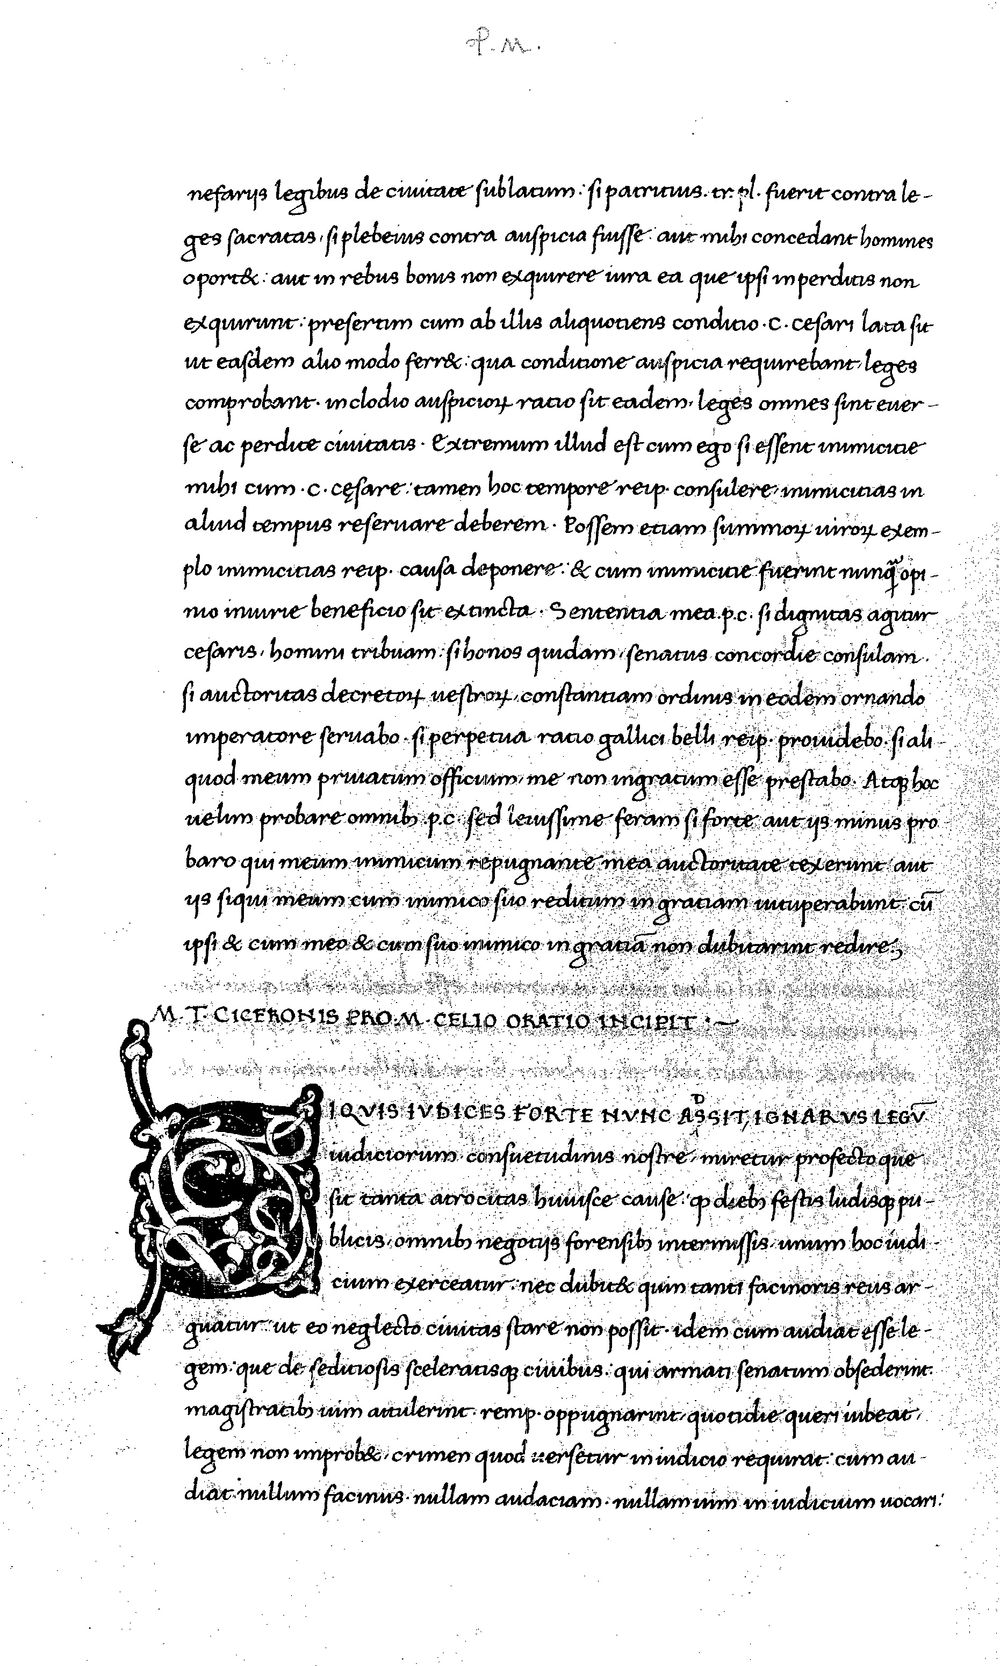 P. M.
nefarijs legibus de ciuitate sublatum: si patritius. tr. pl. fuerit contra le-
ges sacratas, si plebeius contra auspicia fuisse: aut mihi concedant homines
oport&: aut in rebus bonis non exquirere iura ea que ipsi in perditis non
exquirunt: presertim cum ab illis aliquotiens conditio .C. cesari lata sit
ut easdem alio modo ferr&: qua conditione auspicia requirebant, leges
comprobant. in clodio auspicioꝝ ratio sit eadem, leges omnes sint euer-
se ac perdite ciuitatis. Extremum illud est cum ego si essent inimicitie
mihi cum .C. cęsare: tamen hoc tempore reip. consulere, inimicitias in
aliud tempus reseruare deberem. Possem etiam summoꝝ uiroꝝ exem-
plo inimicitias reip. causa deponere: & cum inimicitie fuerint nunq̄ opi-
nio iniurie beneficio sit extincta. Sententia mea .p.c. si dignitas agitur
cesaris, homini tribuam: si honos quidam, senatus concordie consulam.
si auctoritas decretoꝝ uestroꝝ, constantiam ordinis in eodem ornando
imperatore seruabo. si perpetua ratio gallici belli reip. prouidebo. si ali-
quod meum priuatum officium, me non ingratum esse prestabo. Atqꝫ hoc
uelim probare omnibꝫ .p.c. sed leuissime feram si forte aut ijs minus pro
baro qui meum inimicum repugnante mea auctoritate texerunt: aut
ijs siqui meum cum inimico suo reditum in gratiam uituperabunt. cū
ipsi & cum meo & cum suo inimico in gratiā non dubitarint redire:;
M. T. CICERONIS PRO. M. CELIO ORATIO INCIPIT :~
SIQVIS IVDICES FORTE NVNC ADSSIT, IGNARVS LEGV̄
iudiciorum consuetudinis nostre, miretur profecto que
sit tanta atrocitas huiusce cause. ꝙ diebꝫ festis ludisqꝫ pu-
blicis, omnibꝫ negotijs forensibꝫ intermissis, unum hoc iudi-
cium exerceatur: nec dubit& quin tanti facinoris reus ar-
guatur: ut eo neglecto ciuitas stare non possit. idem cum audiat esse le-
gem: que de seditiosis sceleratisqꝫ ciuibus: qui armati senatum obsederint
magistratibꝫ uim attulerint. remp. oppugnarint, quotidie queri iubeat,
legem non improb&, crimen quod uersetur in iudicio requirat: cum au-
diat nullum facinus. nullam audaciam. nullam uim in iudicium uocari: